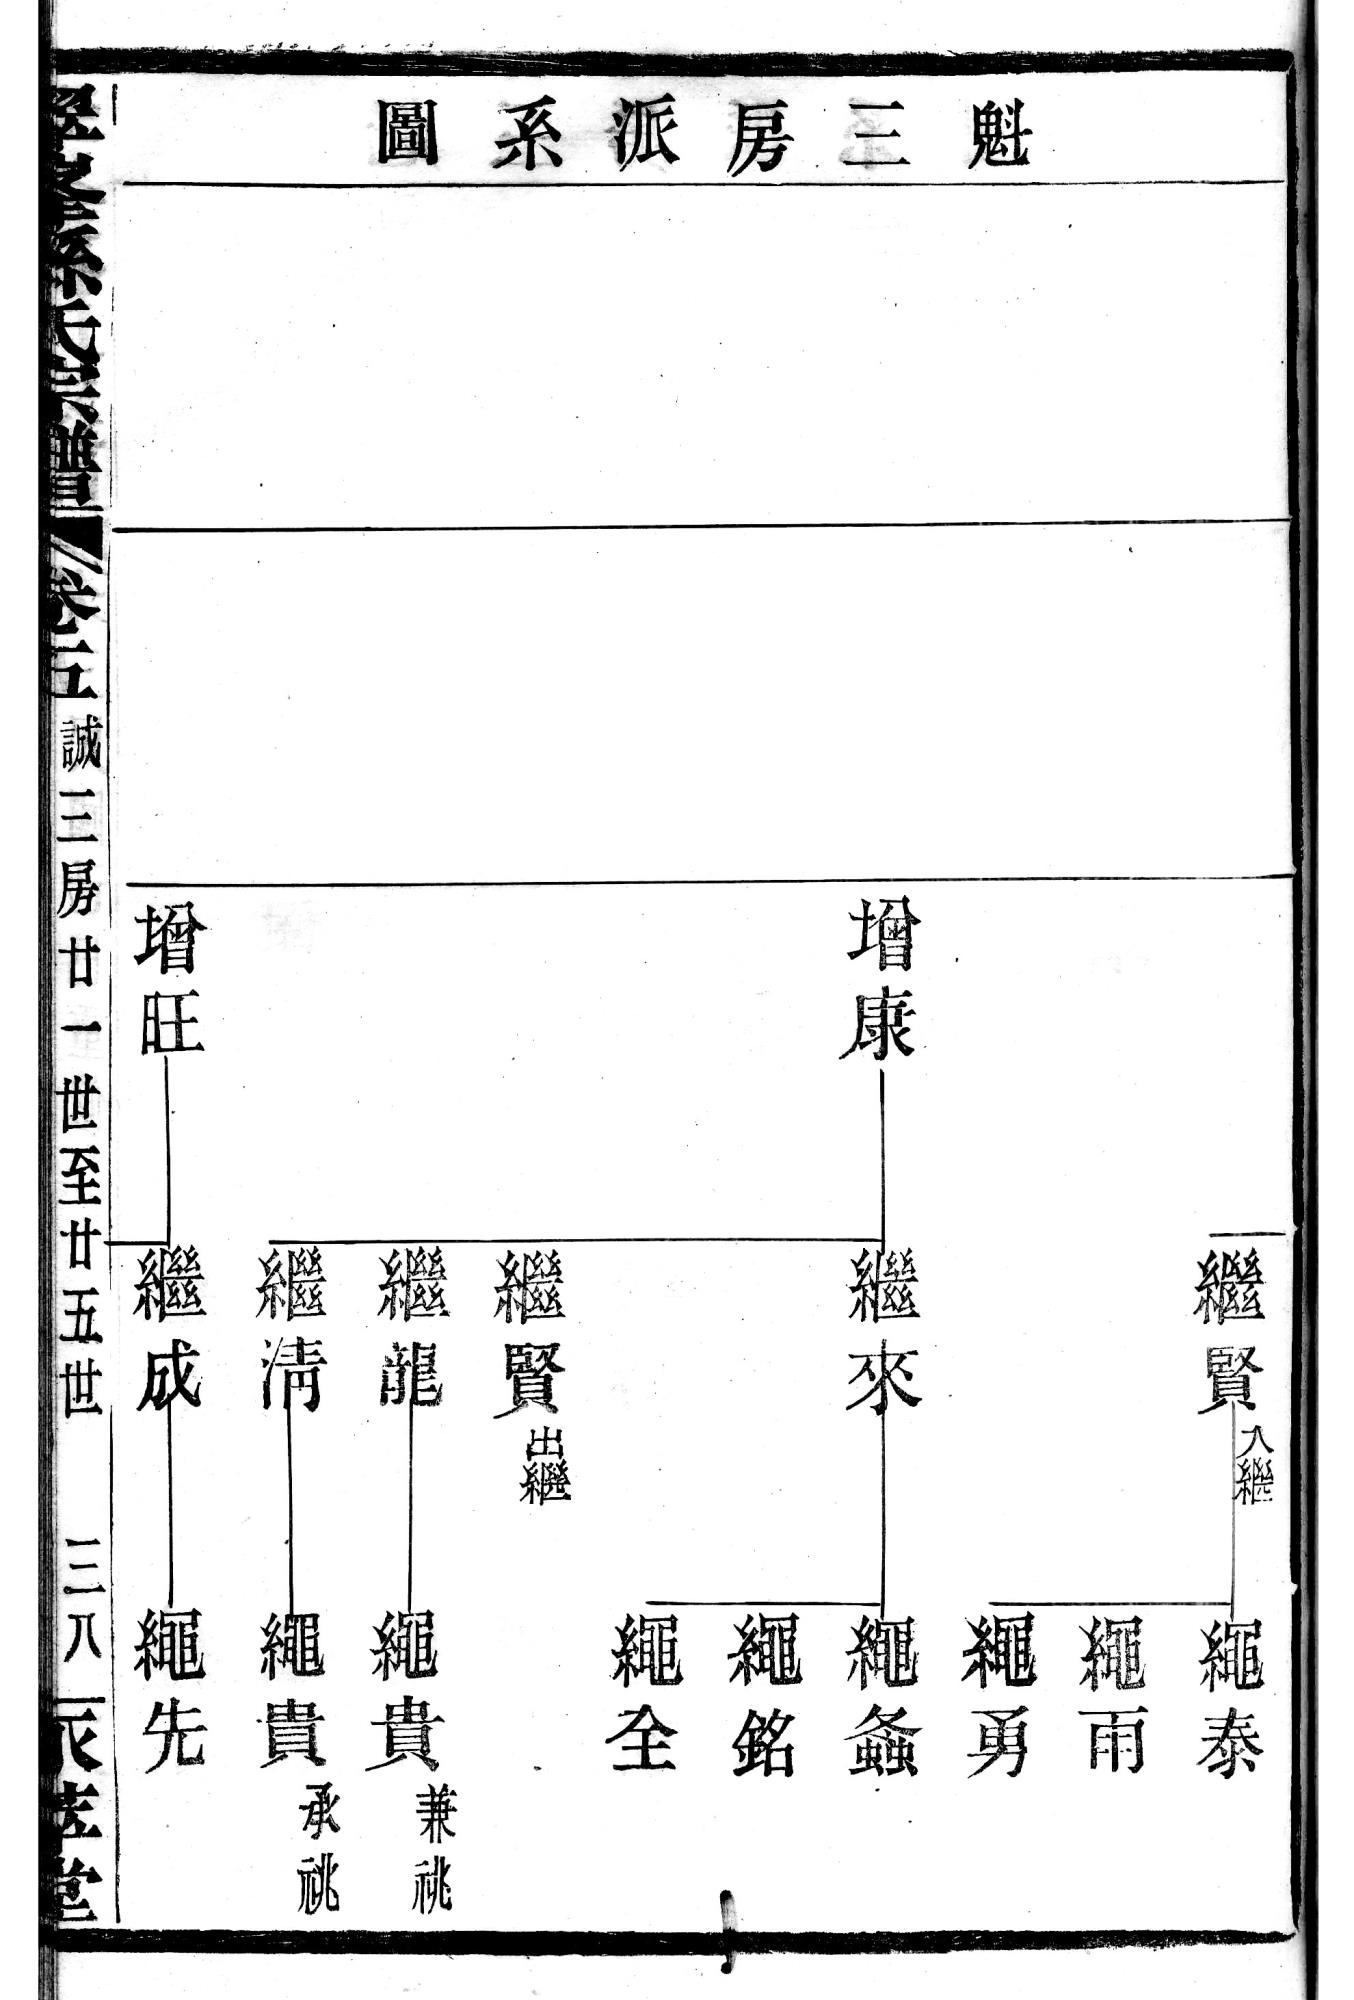 魁三房派系圖
增康
增旺
繼賢
入繼
繼來
繼賢
出繼
繼龍
繼清
繼成
繩泰
繩雨
繩勇
繩螽
繩銘
繩全
繩貴
兼祧
繩貴
承祧
繩先
孫氏宗譜
卷五
誠三房廿一世至廿五世
三八
堂